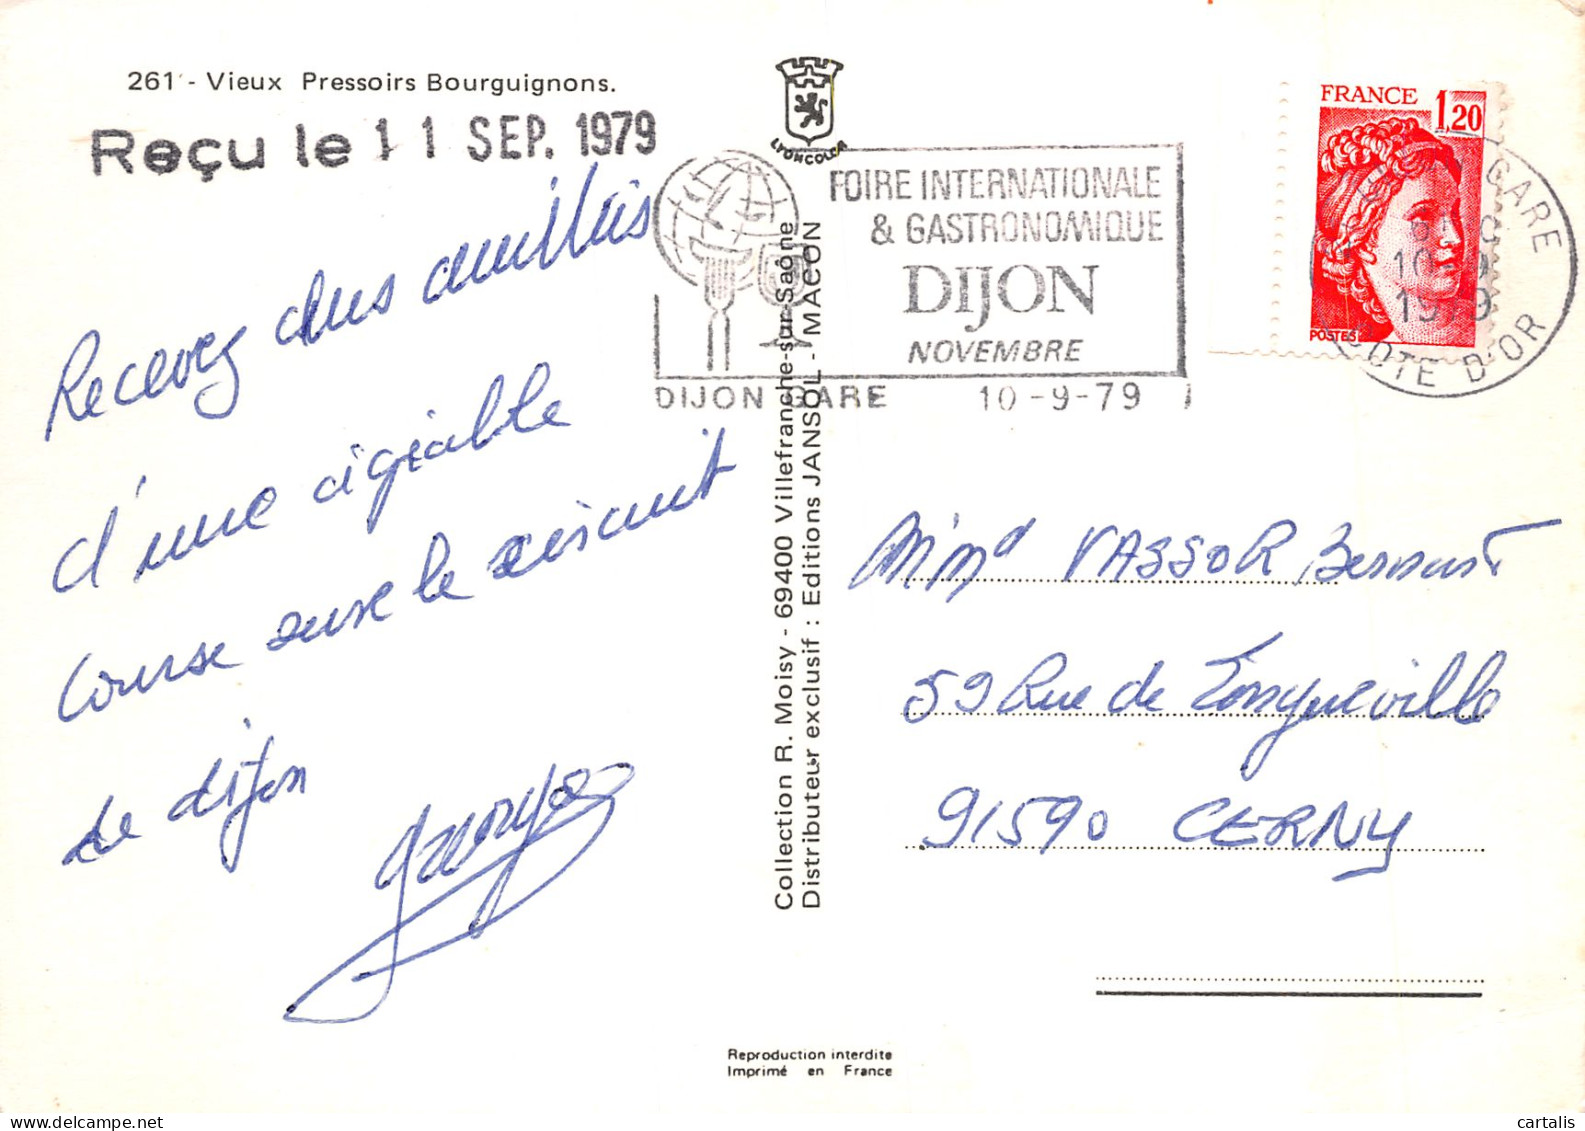 261 - Vieux Pressoirs Bourguignons.
Reçu le 11 SEP. 1979
LYONCOLOR
FOIRE INTERNATIONALE
& GASTRONOMIQUE
DIJON
NOVEMBRE
DIJON GARE 10-9-79
FRANCE 1,20
POSTES
GARE
10
1979
COTE D'OR
Recevez
d'une agréable
course sur le circuit
de dijon
Collection R. Moisy - 69400 Villefranche-sur-Saône
Distributeur exclusif : Editions JANSOL - MACON
VASSOR
59 Rue de Longueville
91590 CERNY
Reproduction interdite
Imprimé en France
cartalis